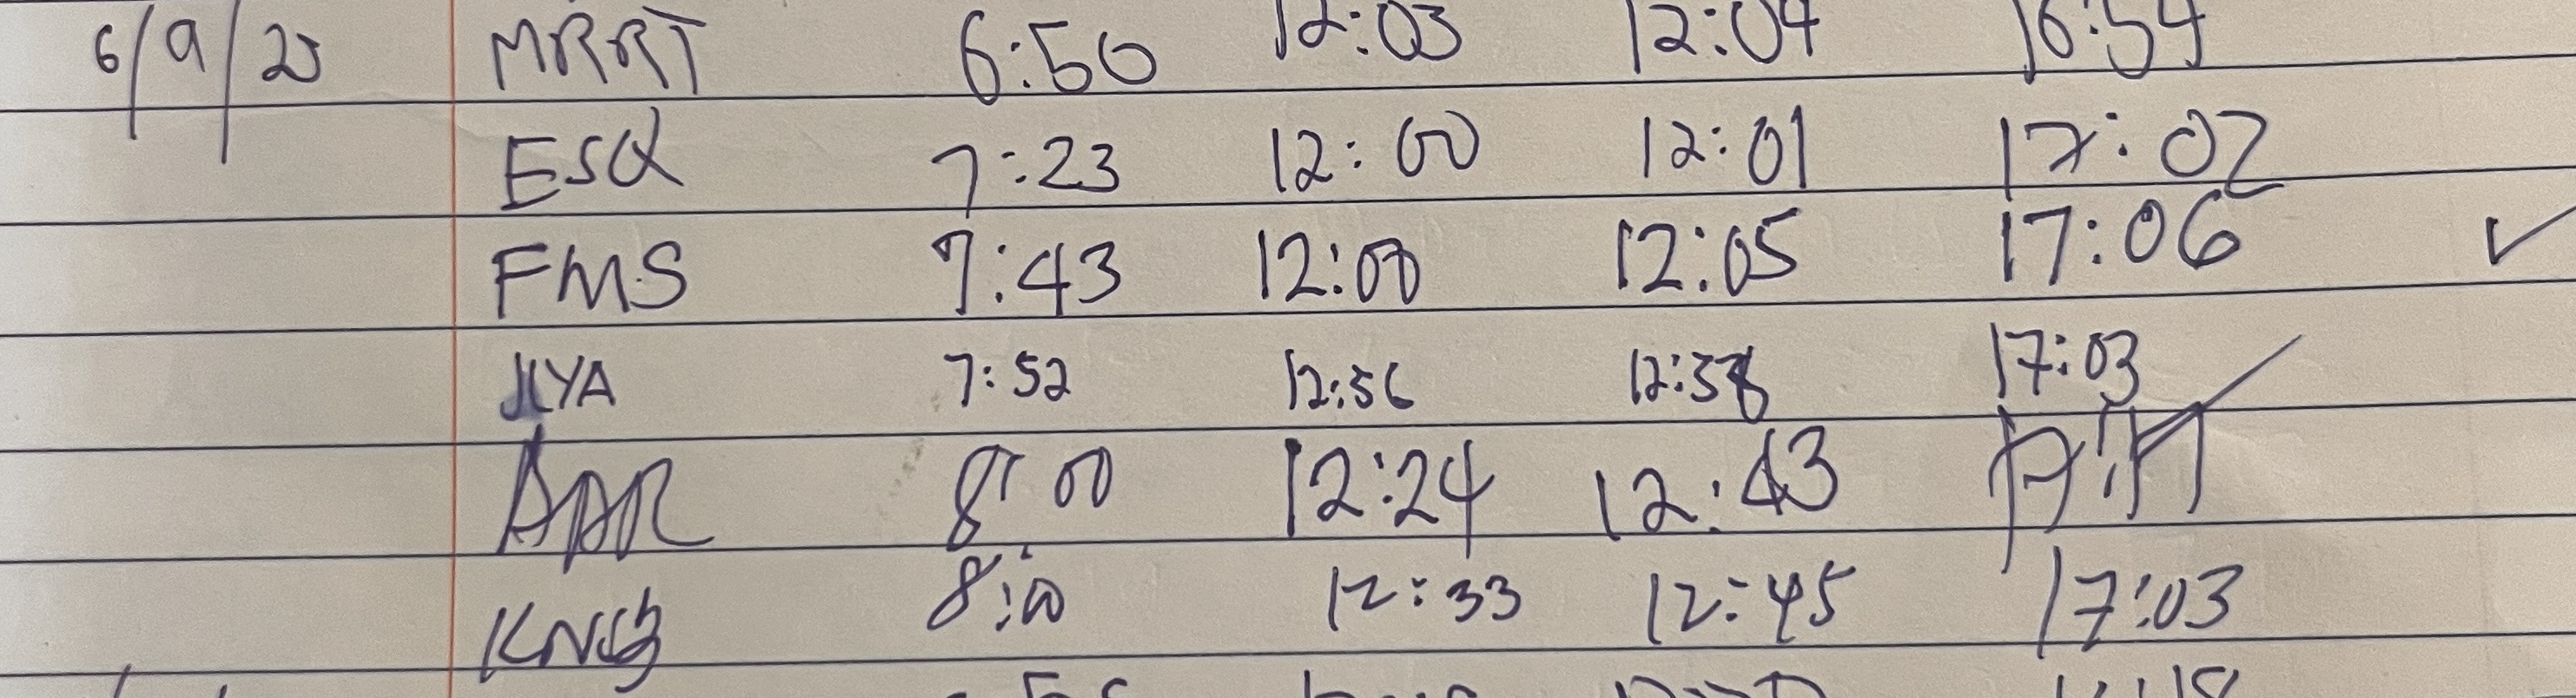 6/9/25 MRRT 6:50 12:03 12:04 16:54
ESQ 7:23 12:00 12:01 17:02
FMS 7:43 12:00 12:05 17:06 ✓
7:52 12:56 12:58 17:03
8:00 12:24 12:43
8:00 12:33 12:45 17:03